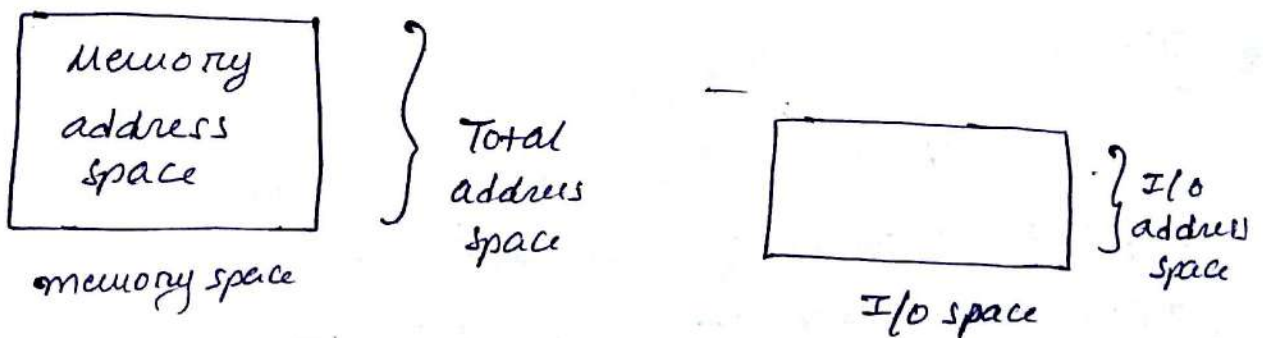 Memory
address
space
Total
address
space
memory space
I/O
address
space
I/O space